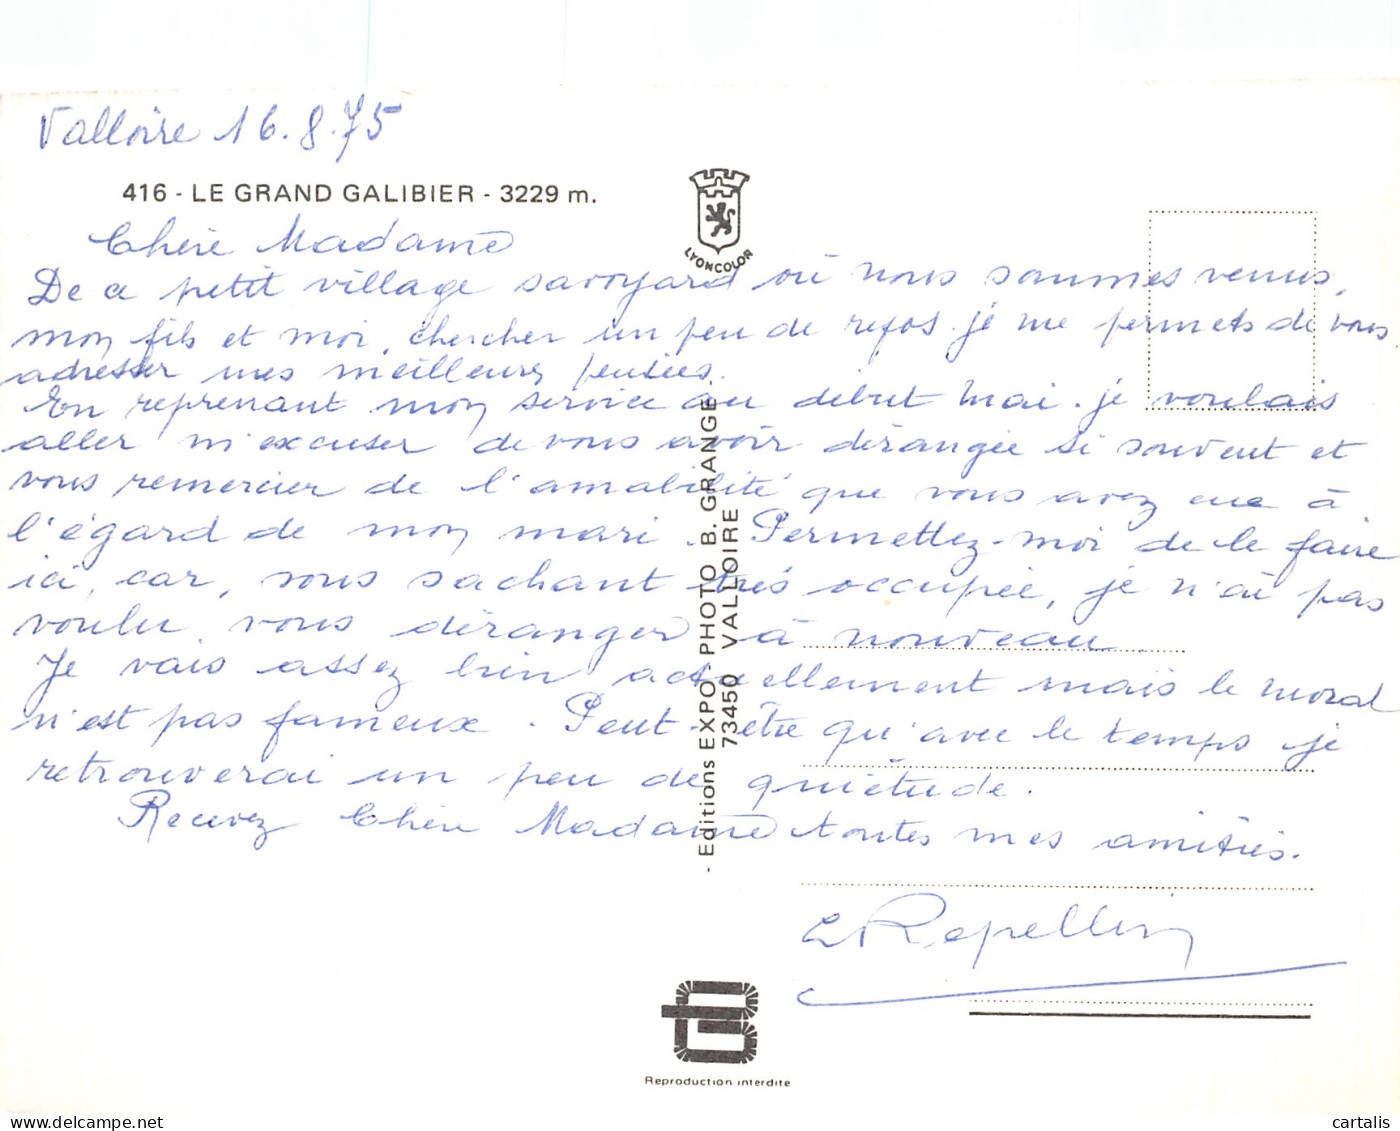 Valloire 16.8.75
416 - LE GRAND GALIBIER - 3229 m.
LYONCOLOR
Chère Madame
De ce petit village savoyard où nous sommes venus,
mon fils et moi, chercher un peu de repos. je me permets de vous
adresser mes meilleures pensées.
En reprenant mon service au début mai. je voulais
aller m'excuser de vous avoir dérangée si souvent et
vous remercier de l'amabilité que vous avez eue à
l'égard de mon mari. Permettez-moi de le faire
ici, car, vous sachant très occupée, je n'ai pas
voulu vous déranger à nouveau.
Je vais assez bien actuellement mais le moral
n'est pas fameux. Peut-être qu'avec le temps je
retrouverai un peu de quiétude.
Recevez Chère Madame toutes mes amitiés.
Repellin
- Editions EXPO - PHOTO B. GRANGE -
73450 VALLOIRE
Reproduction interdite
delcampe.net
cartalis